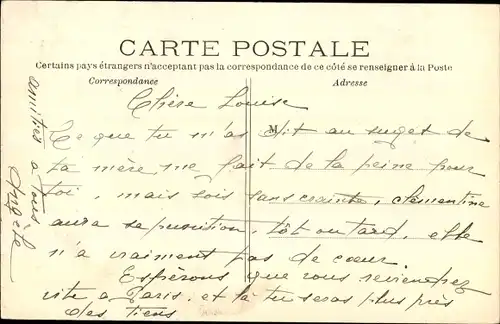 CARTE POSTALE
Certains pays étrangers n'acceptant pas la correspondance de ce côté se renseigner à la Poste
Correspondance
Adresse
Chère Louise
M
Ce que tu m'as dit au sujet de
ta mère me fait de la peine pour
toi, mais sois sans crainte, clementine
aura sa punition, tôt ou tard, elle
n'a vraiment pas de coeur.
Espérons que vous reviendrez
vite a Paris, et là tu seras plus près
des tiens
amitiés a tous
Angèle